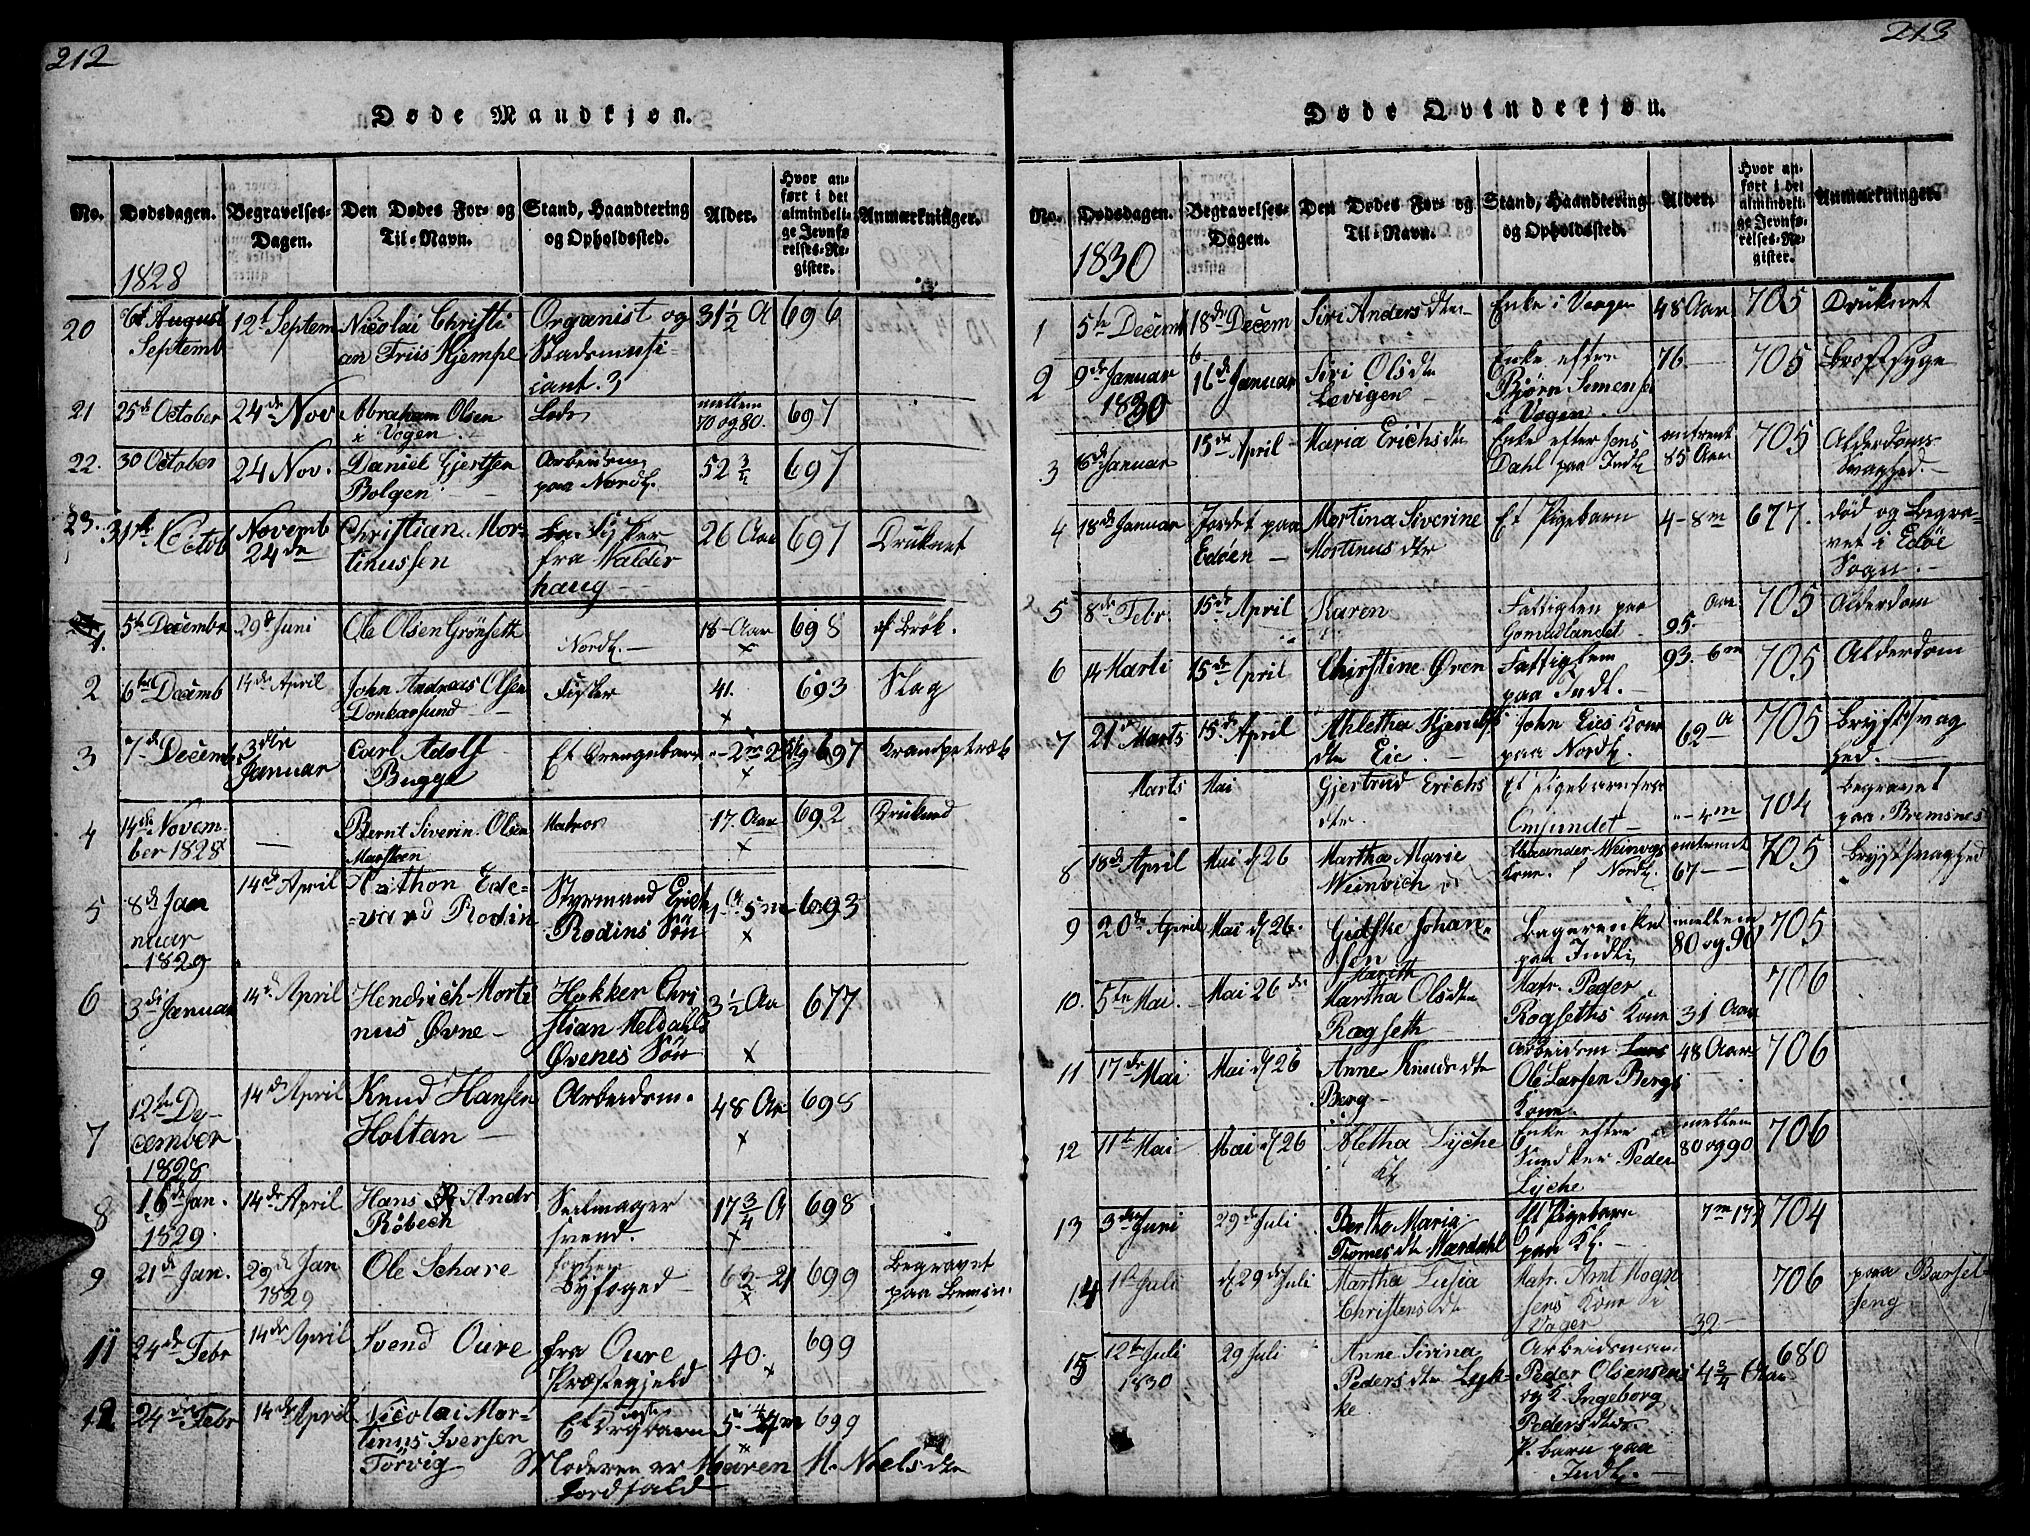 212
Døde Mandkjøn.
No. Dødsdagen. Begravelses-Dagen. Den Dødes For- og Til-Navn. Stand, Haandtering og Opholdssted. Alder. Hvor anført i det almindelige Jevnførelses-Register. Anmærkninger.
1828
20 6t August Septemb 12t Septem Nicolai Christi
an Friis Kjempe Organist og
Stadsmusi-
cant. 31 1/2 A 696
21 25de October 24de Nov Abraham Olsen
i Vogen Lods mellem
70 og 80. 697
22. 30 October 24 Nov. Daniel Gjertsen
Bolgen Arbeidsm
paa Nordl. 52 3/4 697
23. 31te Octob Novemb
24de Christian Mor-
tinussen Fisker
fra Walder
haug 26 Aar 697 Druknet
1. 5te Decembr 29d Juni Ole Olsen Grønseth Nordl. 18 Aar 698 af Brøk.
2 6te Decemb 14de April John Andreas Olsen
Donkarsund Fisker 41. 693 Slag
3 7de Decemb 3die
Januar Carl Adolf
Bugge Et Drengebarn 697 Krampetræk
4 14de Novem-
ber 1828 Bernt Siverin Olsen
Matros 17. Aar 692 Druknet
5 8de Jan
nuar
1829 14de April Ede-
vard Rodin Styrmand Erich
Rodins Søn 1 A 5 m 693
6 3di Januar 14de April Hendrich Morti
nus Øvne Hakker Chri
stian Meldahls
Øvenes Søn 3 1/2 Aar 677
7 12te De-
cember
1828 14de April Knud Hansen
Holtan Arbeidsm. 48 Aar 698
8 16de Jan.
1829. 14de April Hans Andr
Røbech Seilmager
svend. 17 3/4 A 698
9 21de Jan. 29de Jan
1829 Ole Schare
Byfoged 699 Begravet
paa Bremsn.
11 24de Febr 14de April Svend Oure fra Oure
Præstegjeld 40. 699
12 24de Febr 14de April Nicolai Mor-
tinus Iversen
Torvig 699
Moderen er Maren M. Noelsdtr
Bordfald
213
Døde Qvindekjøn.
No. Dødsdagen. Begravelses-Dagen. Den Dødes For- og Til-Navn. Stand, Haandtering og Opholdssted. Alder. Hvor anført i det almindelige Jevnførelses-Register. Anmærkninger.
1830
1 5te Decemb 18de Decem Siri Andersdtr Enke i Vaagen 48 Aar 705 Druknet
2 9de Januar
1830 16de Januar Siri Olsdtr
Levigen Enke efter
Bjørn Simensen
i Vogen 76 705 Brøstsyge
3 6de Januar 15de April Maria Erichsdtr Enke efter Jens
Dahl paa Indl. omtrent
85 Aar 705 Alderdoms
Svaghed.
4 18de Januar Jordet paa
Edøen Mortina Siverine
Mortinusdtr Et Pigebarn 4 - 8m 677. død og begra-
vet i Edøe
Sogn.
5 8de Febr. 15de April Karen Fattiglem paa
Gomalandet 95 Aar 705 Alderdom
6 14 Marti 15de April Christine Øren Fattiglem
paa Indl. 93. 6m 705 Alderdom
7 21de Marts 15de April Ahletha
dtr Eie John Eies Kone
paa Nordl. 62 A 705 Brystsvag
hed.
Marts Mai Gjertrud Erichs
dtr Et Pigebarn fra
Omsundet 704 Begravet
paa Bremsnes
8 18de April Mai d 26 Martha Marie
Weinvich Alexander Weinvigs
Kone. Nordl. omtrent
67 705 Brystsvaghed
9 20de April Mai d 26. Gidske Johan-
sen
paa Indl. mellem
80 og 90 705
10. 5te Mai. Mai 26de Mareth
Martha Olsdtr
Rogseth Matr. Peder
Rogseths Kone 31 Aar 706
11 17de Mai Mai d 26 Anne Knudsdtr
Berg Arbeidsm Lars
Ole Larsen Bergs
Kone 48 Aar 706
12 11te Mai Mai d 26 Aletha Lyche
Enke efter
Peder
Lyche mellem
80 og 90 706
13 3die Juni 29de Juli Bertha Maria
Thomesdtr Mærdahl Et Pigebarn
paa Kl. 7m 704
14 1ste Juli d 29de Juli Martha Lusia
Christensdtr Matr. Arnt Mogn
sens Kone i
Vager 32 706 paa Barsel
seng
15 12te Juli
1830 29 Juli Anne Sirina
Pedersdtr Lyk-
ke. Arbeidsman
Peder Olsensens
og K. Ingeborg
Pedersdtrs
P. barn paa
Indl. 4 3/4 Aar 680